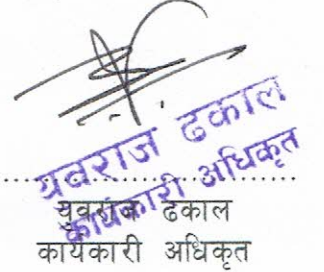 युवराज ढकाल
कार्यकारी अधिकृत
..............................
युवराज ढकाल
कार्यकारी अधिकृत